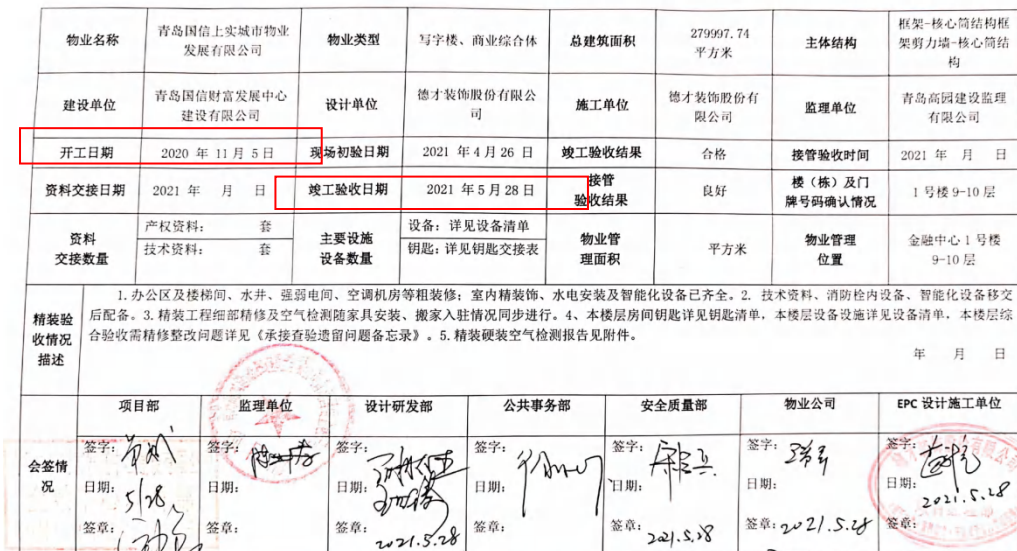 物业名称 青岛国信上实城市物业发展有限公司 物业类型 写字楼、商业综合体 总建筑面积 279997.74平方米 主体结构 框架-核心筒结构框架剪力墙-核心筒结构
建设单位 青岛国信财富发展中心建设有限公司 设计单位 德才装饰股份有限公司 施工单位 德才装饰股份有限公司 监理单位 青岛高园建设监理有限公司
开工日期 2020 年 11 月 5 日 现场初验日期 2021 年 4 月 26 日 竣工验收结果 合格 接管验收时间 2021 年 月 日
资料交接日期 2021 年 月 日 竣工验收日期 2021 年 5 月 28 日 接管验收结果 良好 楼（栋）及门牌号码确认情况 1 号楼 9-10 层
资料交接数量 产权资料： 套 主要设施设备数量 设备：详见设备清单 物业管理面积 平方米 物业管理位置 金融中心 1 号楼 9-10 层
技术资料： 套 钥匙：详见钥匙交接表
精装验收情况描述
1.办公区及楼梯间、水井、强弱电间、空调机房等粗装修；室内精装饰、水电安装及智能化设备已齐全。2. 技术资料、消防栓内设备、智能化设备移交
后配备。3.精装工程细部精修及空气检测随家具安装、搬家入驻情况同步进行。4、本楼层房间钥匙详见钥匙清单，本楼层设备设施详见设备清单，本楼层综
合验收需精修整改问题详见《承接查验遗留问题备忘录》。5.精装硬装空气检测报告见附件。
年 月 日
会签情况
项目部 监理单位 设计研发部 公共事务部 安全质量部 物业公司 EPC 设计施工单位
签字： 签字： 签字： 签字： 签字： 签字： 签字：
日期：5/28 日期： 日期： 日期： 日期： 日期： 日期：2021.5.28
签章： 签章： 签章：2021.5.28 签章： 签章：2021.5.28 签章：2021.5.28 签章：